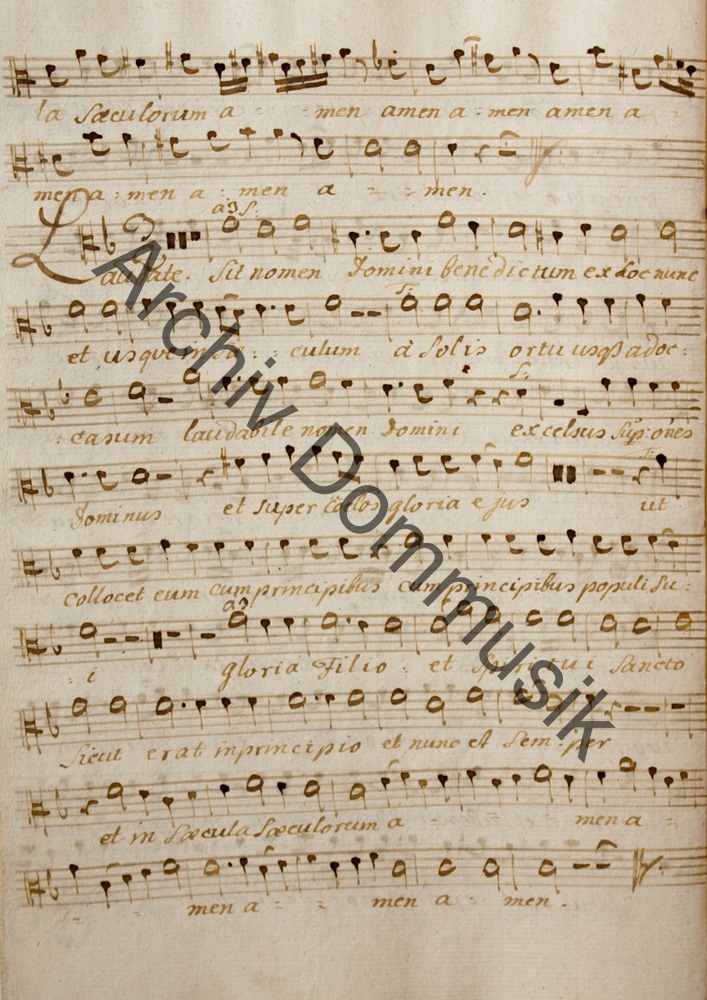 la Sæculorum a - - men amen a - men amen a -
men a - men a - men a - - men.
a3 S:
Laudate. Sit nomen Domini benedictum ex hoc nunc
et usque in Sæ - culum à Solis ortu usq adoc:
S:
:casum laudabile nomen Domini excelsus sup: ones
Dominus et super Cœlos gloria ejus ut
collocet eum cum principibus cum principibus populi Su:
a3
:i gloria Filio. et Spiritui Sancto
Sicut erat in principio et nunc et Sem: per
et in Sæcula Sæculorum a - - men a -
- - men a - - men a - men.
Archiv Dommusik